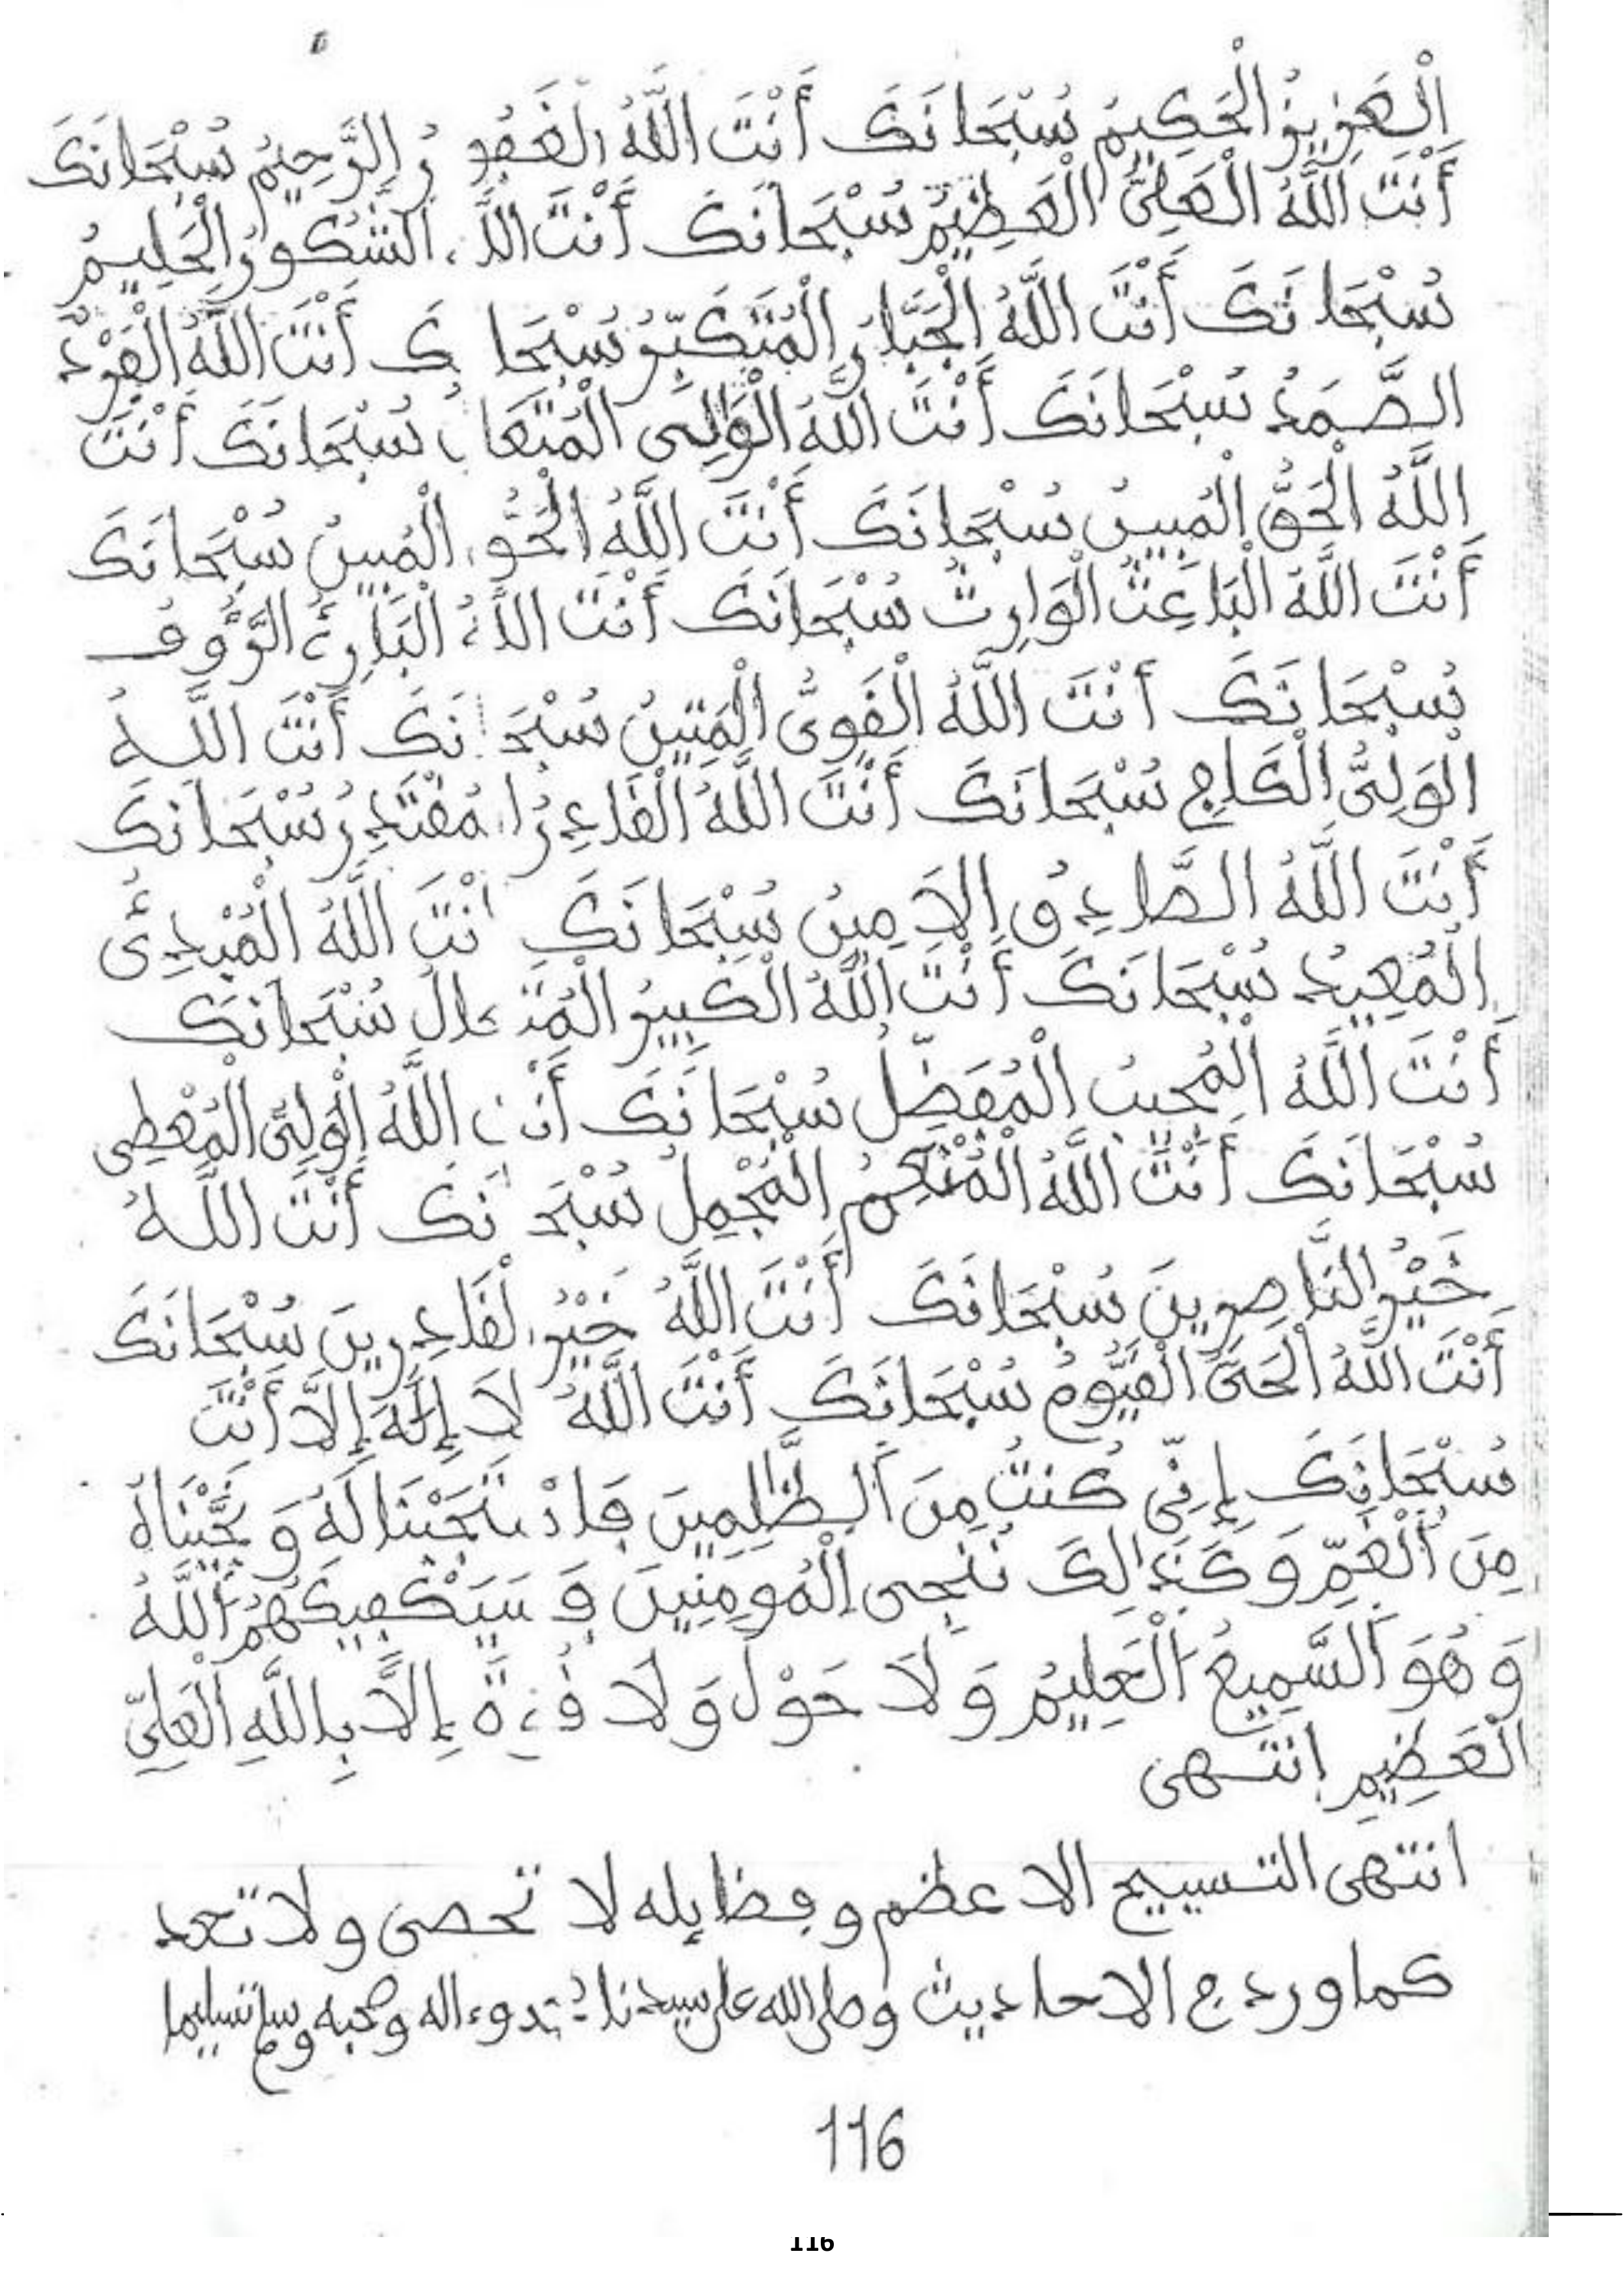 الْعَزِيزُ الْحَكِيمُ سُبْحَانَكَ أَنْتَ اللَّهُ الْغَفُورُ الرَّحِيمُ سُبْحَانَكَ
أَنْتَ اللَّهُ الْعَلِيُّ الْعَظِيمُ سُبْحَانَكَ أَنْتَ اللَّهُ الشَّكُورُ الْحَلِيمُ
سُبْحَانَكَ أَنْتَ اللَّهُ الْجَبَّارُ الْمُتَكَبِّرُ سُبْحَانَكَ أَنْتَ اللَّهُ الْفَرْدُ
الصَّمَدُ سُبْحَانَكَ أَنْتَ اللَّهُ الْوَالِي الْمُتَعَالِ سُبْحَانَكَ أَنْتَ
اللَّهُ الْحَقُّ الْمُبِينُ سُبْحَانَكَ أَنْتَ اللَّهُ الْحَقُّ الْمُبِينُ سُبْحَانَكَ
أَنْتَ اللَّهُ الْبَاعِثُ الْوَارِثُ سُبْحَانَكَ أَنْتَ اللَّهُ الْبَارِئُ الرَّءُوفُ
سُبْحَانَكَ أَنْتَ اللَّهُ الْقَوِيُّ الْمَتِينُ سُبْحَانَكَ أَنْتَ اللَّهُ
الْوَلِيُّ الْكَافِي سُبْحَانَكَ أَنْتَ اللَّهُ الْقَادِرُ الْمُقْتَدِرُ سُبْحَانَكَ
أَنْتَ اللَّهُ الصَّادِقُ الْأَمِينُ سُبْحَانَكَ أَنْتَ اللَّهُ الْمُبْدِئُ
الْمُعِيدُ سُبْحَانَكَ أَنْتَ اللَّهُ الْكَبِيرُ الْمُتَعَالُ سُبْحَانَكَ
أَنْتَ اللَّهُ الْمُجِيبُ الْمُفَضِّلُ سُبْحَانَكَ أَنْتَ اللَّهُ الْوَلِيُّ الْمُعْطِي
سُبْحَانَكَ أَنْتَ اللَّهُ الْمُنْعِمُ الْمُجْمِلُ سُبْحَانَكَ أَنْتَ اللَّهُ
خَيْرُ النَّاصِرِينَ سُبْحَانَكَ أَنْتَ اللَّهُ خَيْرُ الْقَادِرِينَ سُبْحَانَكَ
أَنْتَ اللَّهُ الْحَيُّ الْقَيُّومُ سُبْحَانَكَ أَنْتَ اللَّهُ لَا إِلَهَ إِلَّا أَنْتَ
سُبْحَانَكَ إِنِّي كُنتُ مِنَ الظَّلِمِينَ فَاسْتَجَبْنَا لَهُ وَنَجَّيْنَاهُ
مِنَ الْغَمِّ وَكَذَالِكَ نُنْجِي الْمُومِنِينَ فَسَيَكْفِيكَهُمُ اللَّهُ
وَهُوَ السَّمِيعُ الْعَلِيمُ وَلَا حَوْلَ وَلَا قُوَّةَ إِلَّا بِاللَّهِ الْعَلِيِّ
الْعَظِيمِ انتهى
انتهى التسبيح الاعظم وفضايله لا تحصى ولا تعد
كما ورد في الاحاديث وصلى الله على سيدنا محمد وءاله وصحبه وسلم تسليما
116
116